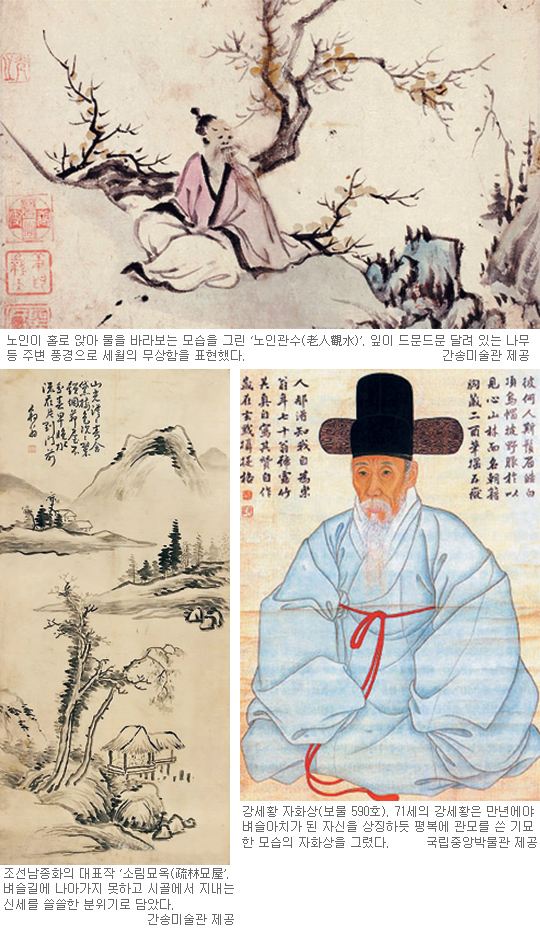 노인이 홀로 앉아 물을 바라보는 모습을 그린 ‘노인관수(老人觀水)’. 잎이 드문드문 달려 있는 나무
등 주변 풍경으로 세월의 무상함을 표현했다. 간송미술관 제공
彼何人斯鬚眉皓白
頂烏帽披野服於以
見心山林而名朝籍
胸藏二酉筆搖五嶽
人那得知我自爲樂
翁年七十翁號露竹
其眞自寫其贊自作
歲在玄黓攝提格
강세황 자화상(보물 590호). 71세의 강세황은 만년에야
벼슬아치가 된 자신을 상징하듯 평복에 관모를 쓴 기묘
한 모습의 자화상을 그렸다. 국립중앙박물관 제공
조선남종화의 대표작 ‘소림묘옥(疏林茆屋’.
벼슬길에 나아가지 못하고 시골에서 지내는
신세를 쓸쓸한 분위기로 담았다.
간송미술관 제공